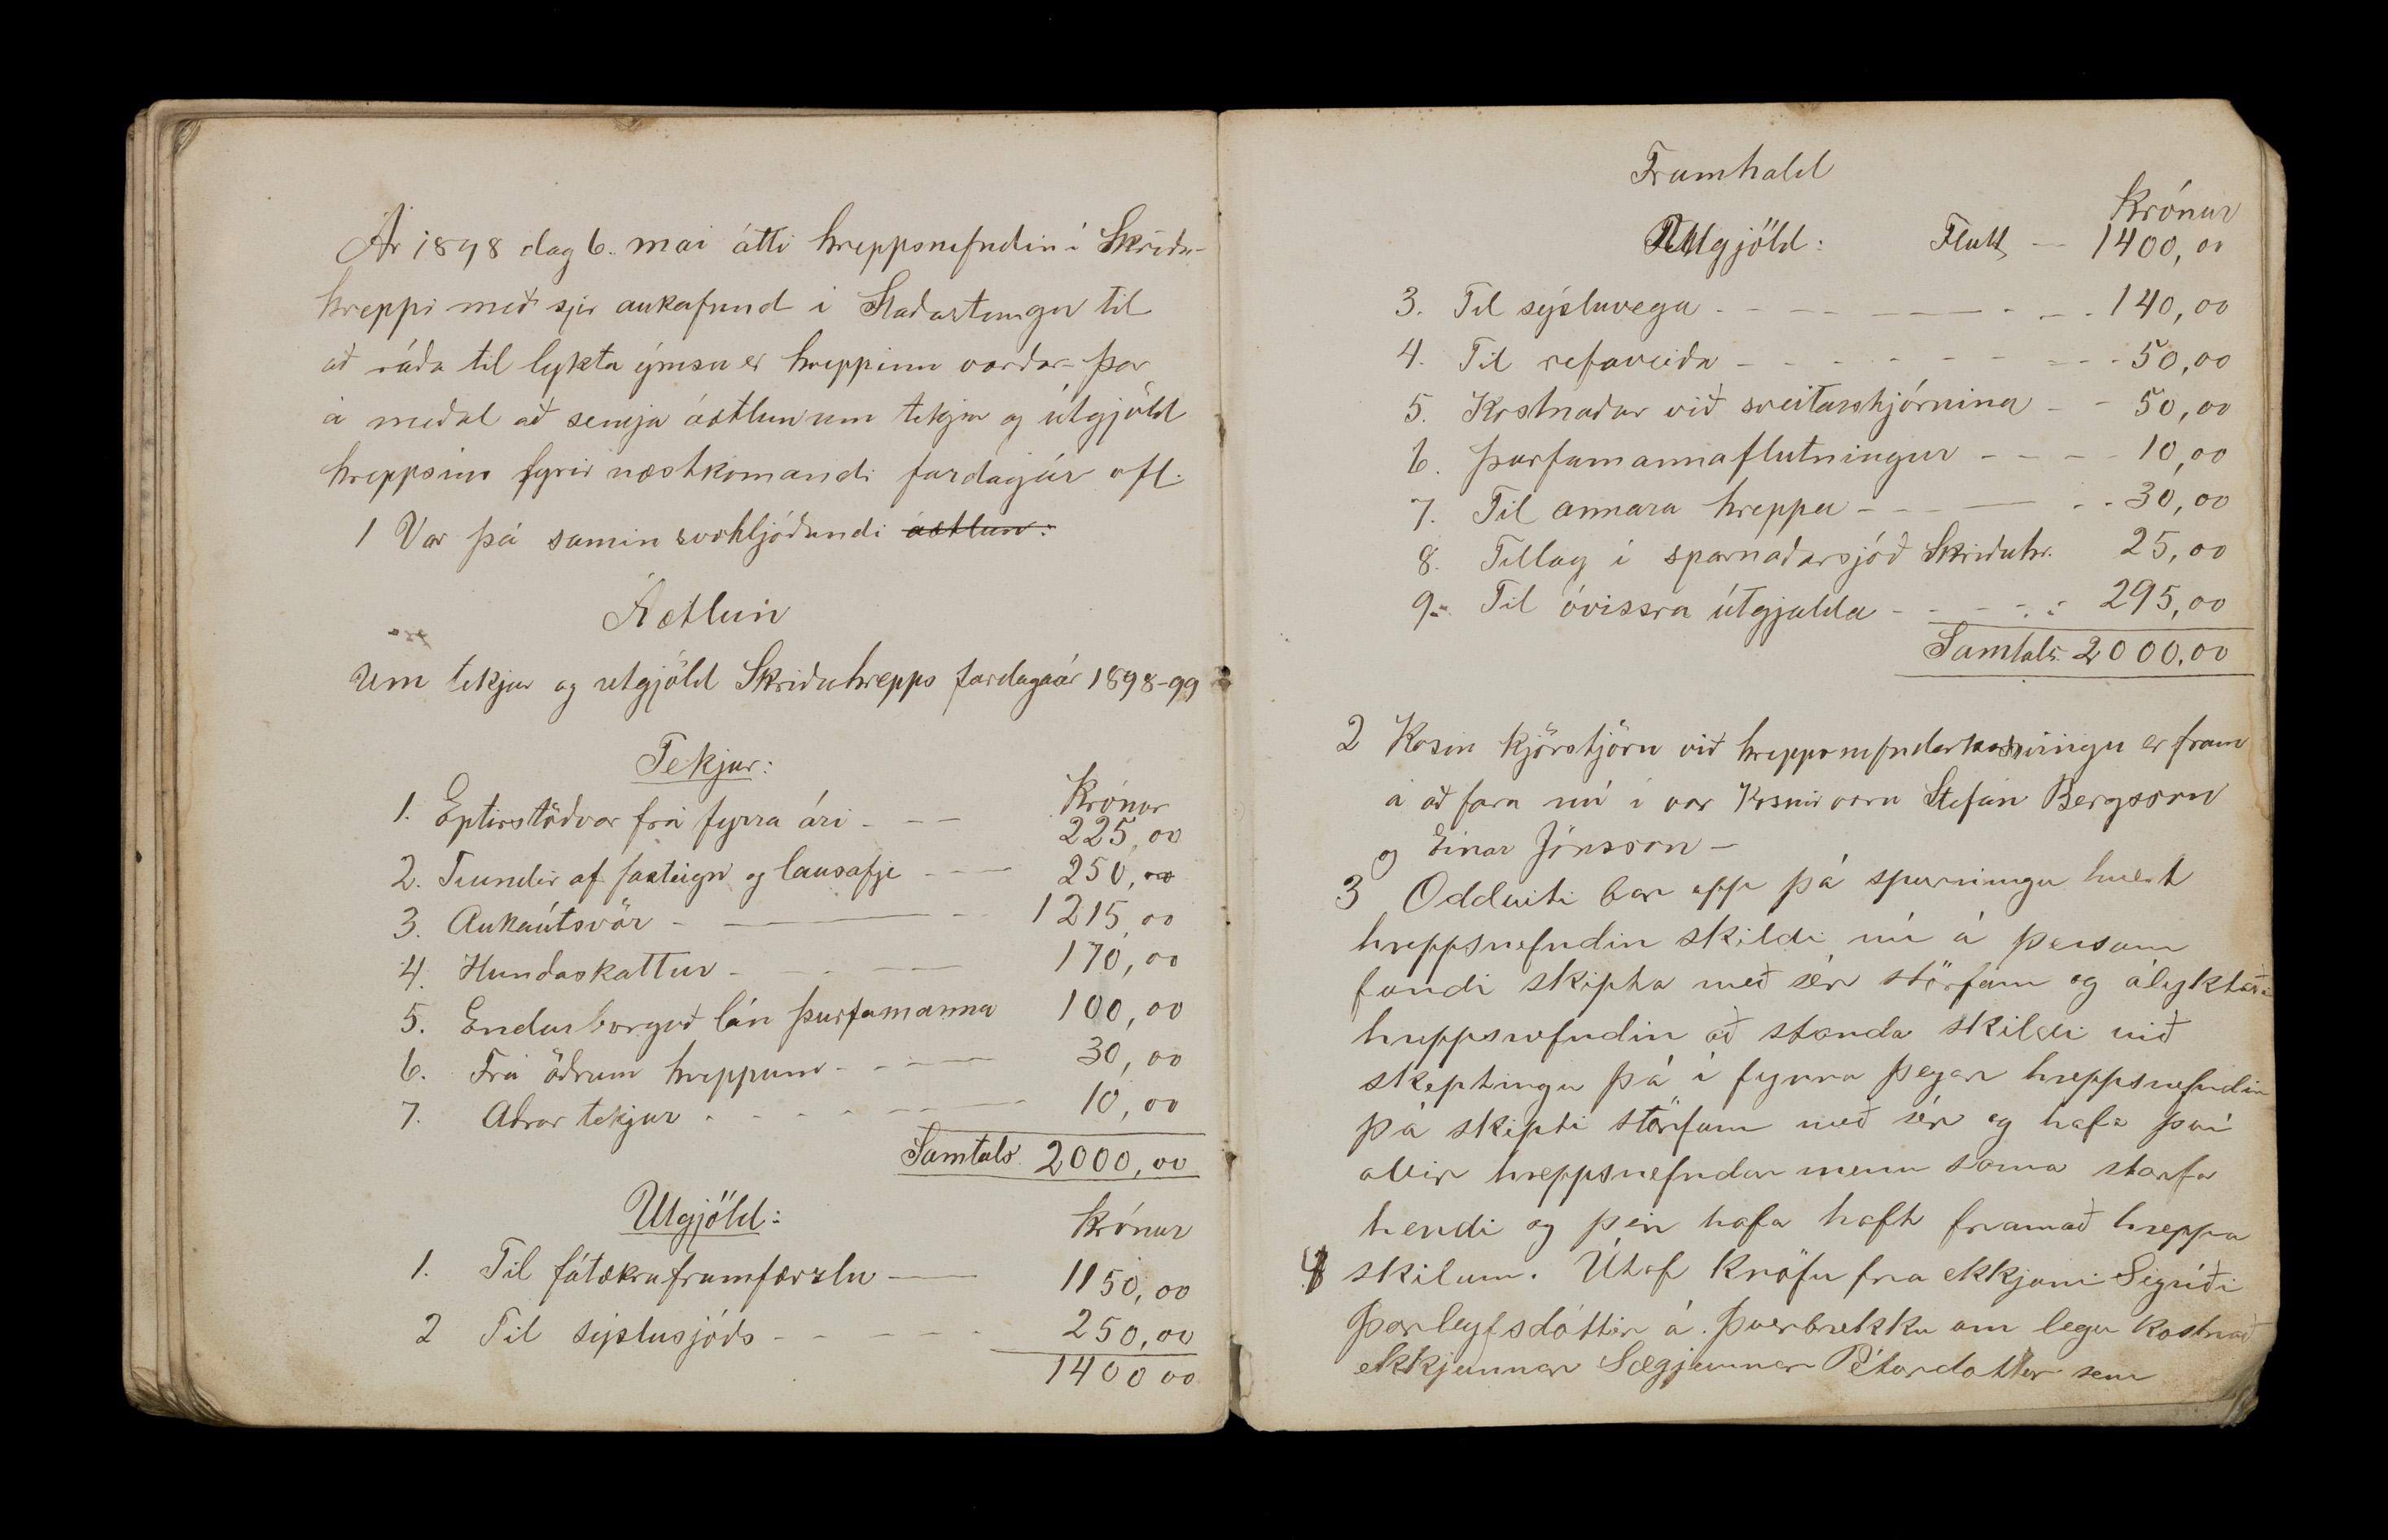 Ár 1898 dag 6. mai átti hreppsnefndin í Skriðu-
hreppi með sjer aukafund í Staðartungu til
að ráða til lykta ýmsu er hreppinn varðar - þar
á meðal að semja áætlun um tekjur og útgjöld
hreppsins fyrir næstkomandi fardagaár ofl.
1 Var þá samin svohljóðandi áætlun:
Áætlun
Um tekjur og utgjöld Skriðuhrepps fardagaár 1898-99
Tekjur:
Krónur
1. Eptirstöðvar frá fyrra ári - - - 225,00
2. Tiundir af fasteign og lausafje - - - 250,00
3. Aukaútsvör - - - 1215,00
4. Hundaskattur - - - 170,00
5. Endurborguð lán þurfamanna 100,00
6. Frá öðrum hreppum - - - 30,00
7. Aðrar tekjur - - - 10,00
Samtals 2000,00
Utgjöld:
Krónur
1. Til fátækraframfærslu - 1150,00
2 Til sýslusjóðs - - - 250,00
1400 00
Framhald
Krónur
Utgjöld: Flutt - 1400,00
3. Til sýsluvega - - - 140,00
4. Til refaveiða - - - 50,00
5. Kostnaður við sveitarstjórnina - - 50,00
6. Þurfamannaflutningur - - - 10,00
7. Til annara hreppa - - - 30,00
8. Tillag í sparnaðarsjóð Skriðuhr. 25,00
9. Til óvissra útgjalda - - - 295,00
Samtals 2000,00
2 Kosin kjörstjórn við hreppsnefndarkosningu er fram
á að fara nú í vor Kosnir voru Stefán Bergsson
og Einar Jónsson -
3 Oddviti bar upp þá spurningu hvert
hreppsnefndin skildi nú á þessum
fundi skipta með sér störfum og ályktaði
hreppsnefndin að standa skildi við
skiptingu þá í fyrra þegar hreppsnefndin
þá skipti störfum með sér og hafa því
allir hreppsnefndar menn sama starfa
hendi og þeir hafa haft framað hreppa
4 skilum. Útaf kröfu fra ekkjuni Sigríði
Þorleyfsdóttir á Þverbrekku um legu kostnað
ekkjunnar Sægjunnar Pétursdottur sem